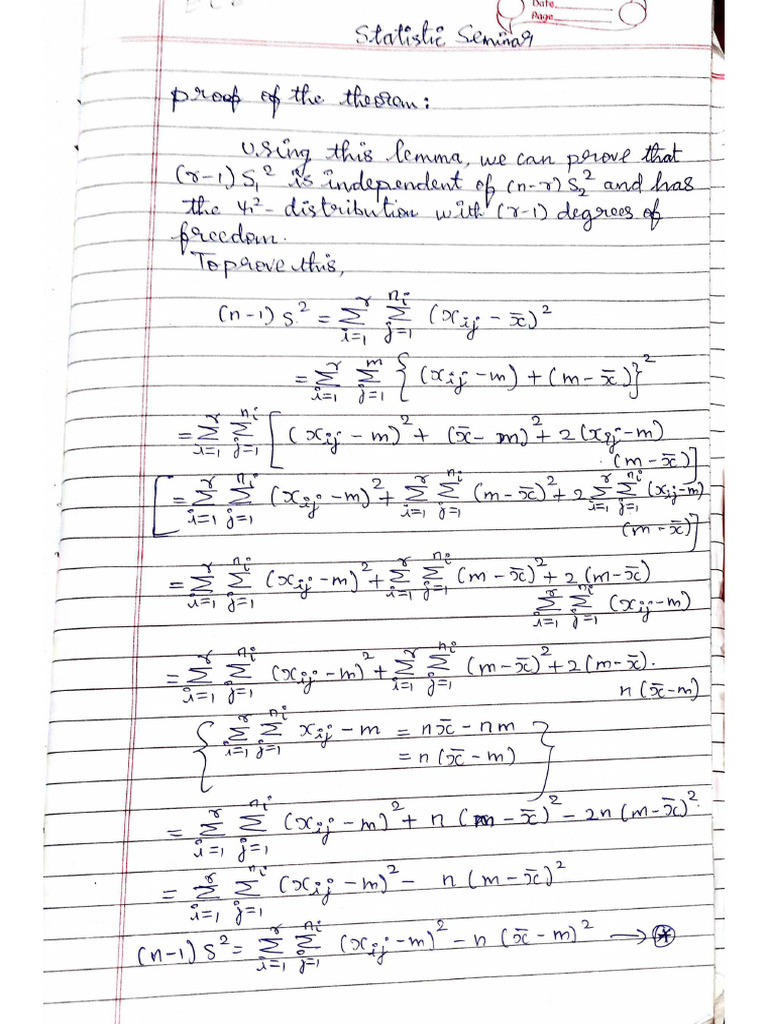 Date.
Page.
Statistic Seminar
Proof of the theorem:
Using this lemma, we can prove that
(r-1) S₁² is independent of (n-r) S₂² and has
the χ²- distribution with (r-1) degrees of
freedom.
To prove this,
(n-1) S² = Σ_{i=1}^{r} Σ_{j=1}^{n_i} (x_{ij} - x̄)²
= Σ_{i=1}^{r} Σ_{j=1}^{m} { (x_{ij} - m) + (m - x̄)}²
= Σ_{i=1}^{r} Σ_{j=1}^{n_i} [ (x_{ij} - m)² + (x̄ - m)² + 2 (x_{ij} - m)
(m - x̄)]
[ = Σ_{i=1}^{r} Σ_{j=1}^{n_i} (x_{ij} - m)² + Σ_{i=1}^{r} Σ_{j=1}^{n_i} (m - x̄)² + 2 Σ_{i=1}^{r} Σ_{j=1}^{n_i} (x_{ij} - m)
(m - x̄)]
= Σ_{i=1}^{r} Σ_{j=1}^{n_i} (x_{ij} - m)² + Σ_{i=1}^{r} Σ_{j=1}^{n_i} (m - x̄)² + 2 (m - x̄)
Σ_{i=1}^{r} Σ_{j=1}^{n_i} (x_{ij} - m)
= Σ_{i=1}^{r} Σ_{j=1}^{n_i} (x_{ij} - m)² + Σ_{i=1}^{r} Σ_{j=1}^{n_i} (m - x̄)² + 2 (m - x̄).
n (x̄ - m)
{ Σ_{i=1}^{r} Σ_{j=1}^{n_i} x_{ij} - m = n x̄ - n m
= n (x̄ - m) }
= Σ_{i=1}^{r} Σ_{j=1}^{n_i} (x_{ij} - m)² + n (m - x̄)² - 2n (m - x̄)².
= Σ_{i=1}^{r} Σ_{j=1}^{n_i} (x_{ij} - m)² - n (m - x̄)²
(n-1) S² = Σ_{i=1}^{r} Σ_{j=1}^{n_i} (x_{ij} - m)² - n (x̄ - m)² → ⊛